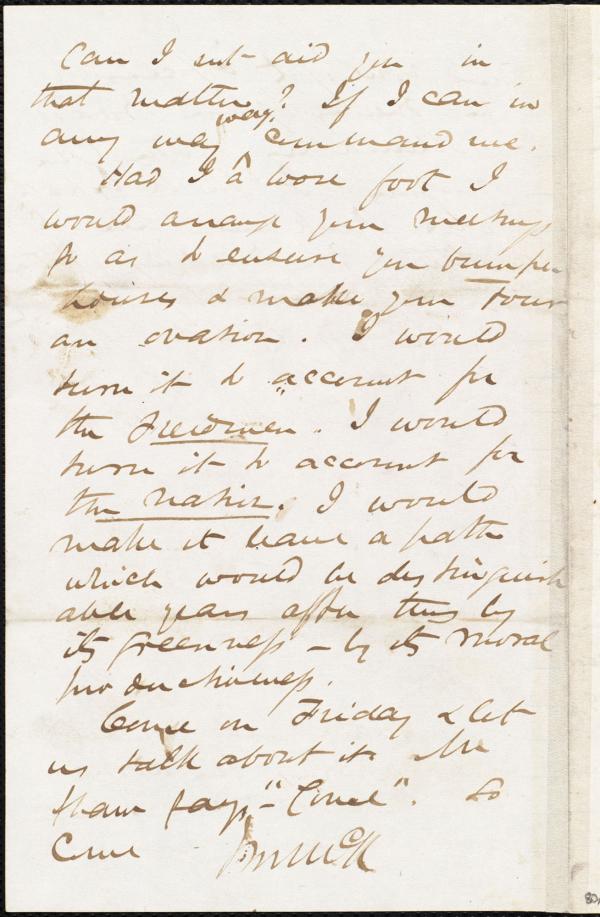 Can I not aid you in
that matter? If I can in
any way way command me.
Had I a loose foot I
would arrange your meetings
so as to ensure you bumper
houses & make your tour
an ovation. I would
turn it to account for
the Freedmen. I would
turn it to account for
the nation. I would
make it leave a path
which would be distinguish
able years after this by
its greenness - by its moral
productiveness.
Come on Friday & let
us talk about it. Mr
Shaw says, - "Come". So
Come JMMcK
80